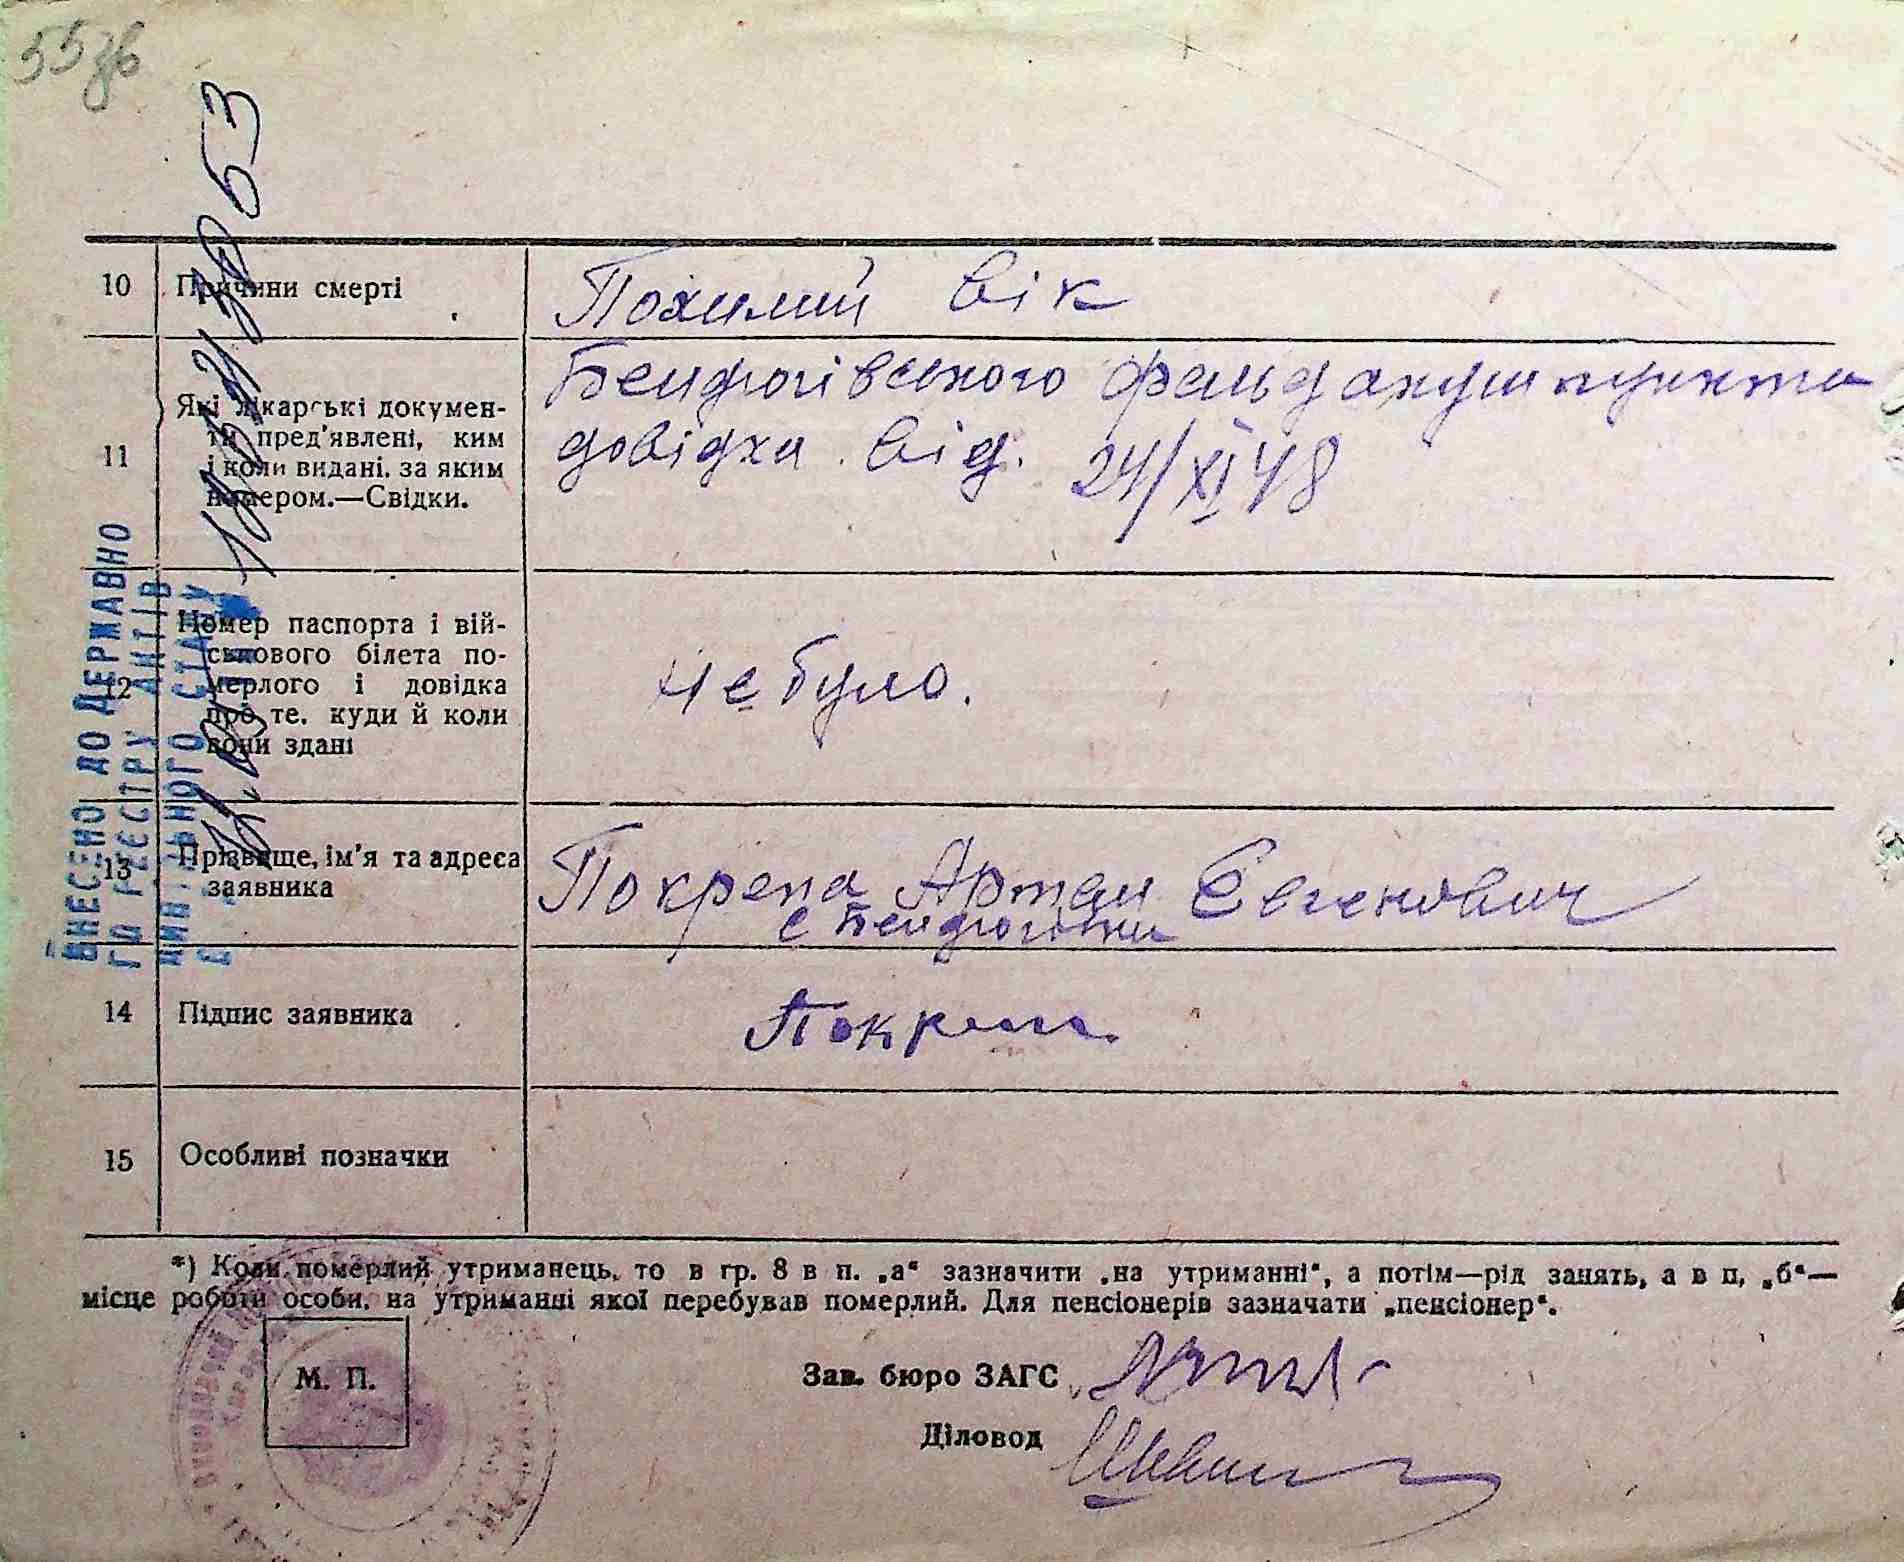 55 зв
10 Причини смерті Похилий вік
11 Які лікарські докумен-
ти пред'явлені, ким
і коли видані, за яким
номером.—Свідки.
Бендюгівського фельдакушпункта
довідка від. 24/XI 48
12 Номер паспорта і вій-
ськового білета по-
мерлого і довідка
про те, куди й коли
вони здані
не було.
13 Прізвище, ім'я та адреса
заявника
Покрепа Артем Євгенович
с Бендюгівки
14 Підпис заявника Покрепа
15 Особливі позначки
*) Коли померлий утриманець, то в гр. 8 в п. „а“ зазначити „на утриманні“, а потім—рід занять, а в п, „б“—
місце роботи особи, на утриманні якої перебував померлий. Для пенсіонерів зазначати „пенсіонер“.
М. П.
Зав. бюро ЗАГС
Діловод
ВНЕСЕНО ДО ДЕРЖАВНО
ГО РЕЄСТРУ АКТІВ
ЦИВІЛЬНОГО СТАНУ